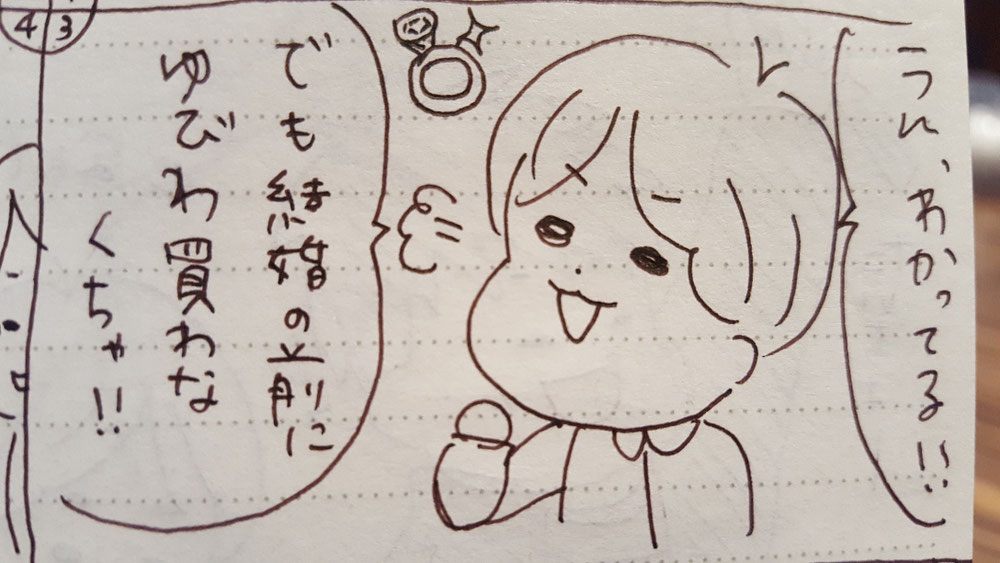 うん、わかってる!!
でも結婚の前に
ゆびわ買わな
くちゃ!!
4
3